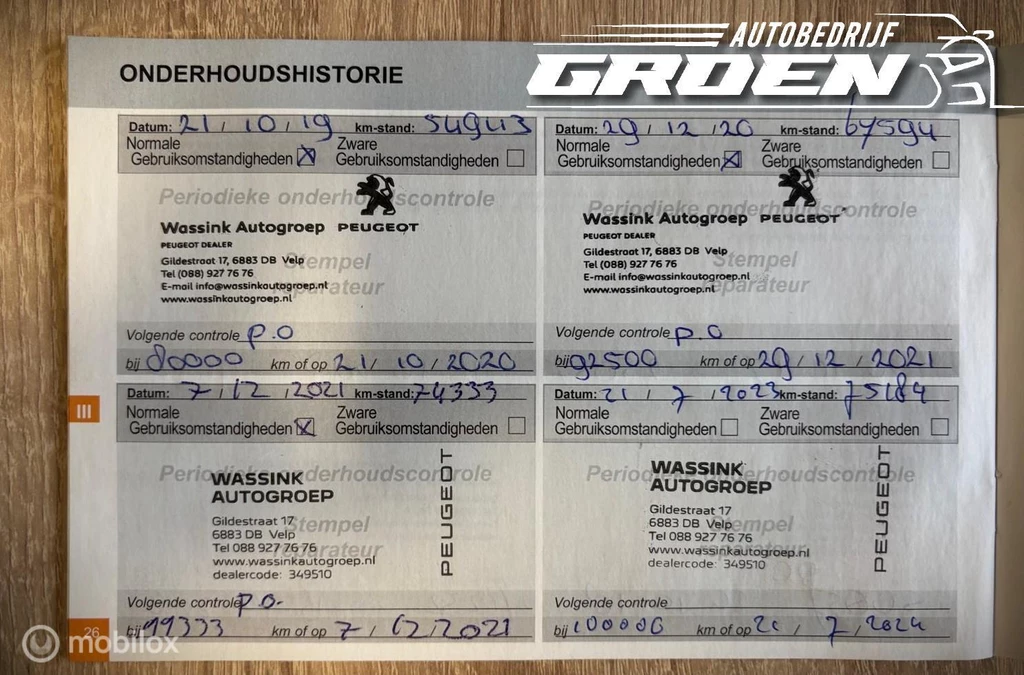 AUTOBEDRIJF
GROEN
ONDERHOUDSHISTORIE
Datum: 21 / 10 / 19 km-stand: 54943
Normale Gebruiksomstandigheden Zware Gebruiksomstandigheden
Periodieke onderhoudscontrole
Wassink Autogroep PEUGEOT
PEUGEOT DEALER
Gildestraat 17, 6883 DB Velp
Tel (088) 927 76 76
E-mail info@wassinkautogroep.nl
www.wassinkautogroep.nl
Stempel
reparateur
Volgende controle P.O
bij 80000 km of op 21 / 10 / 2020
Datum: 29 / 12 / 20 km-stand: 67594
Normale Gebruiksomstandigheden Zware Gebruiksomstandigheden
Periodieke onderhoudscontrole
Wassink Autogroep PEUGEOT
PEUGEOT DEALER
Gildestraat 17, 6883 DB Velp
Tel (088) 927 76 76
E-mail info@wassinkautogroep.nl
www.wassinkautogroep.nl
Stempel
reparateur
Volgende controle P.O
bij 92500 km of op 29 / 12 / 2021
III
Datum: 7 / 12 / 2021 km-stand: 74333
Normale Gebruiksomstandigheden Zware Gebruiksomstandigheden
Periodieke onderhoudscontrole
WASSINK
AUTOGROEP
PEUGEOT
Gildestraat 17
6883 DB Velp
Tel 088 927 76 76
www.wassinkautogroep.nl
dealercode: 349510
Stempel
reparateur
Volgende controle P.O.
bij 99333 km of op 7 / 12 / 2021
Datum: 21 / 7 / 2023 km-stand: 75184
Normale Gebruiksomstandigheden Zware Gebruiksomstandigheden
Periodieke onderhoudscontrole
WASSINK
AUTOGROEP
PEUGEOT
Gildestraat 17
6883 DB Velp
Tel 088 927 76 76
www.wassinkautogroep.nl
dealercode: 349510
Stempel
reparateur
Volgende controle
bij 100000 km of op 21 / 7 / 2024
26
mobilox